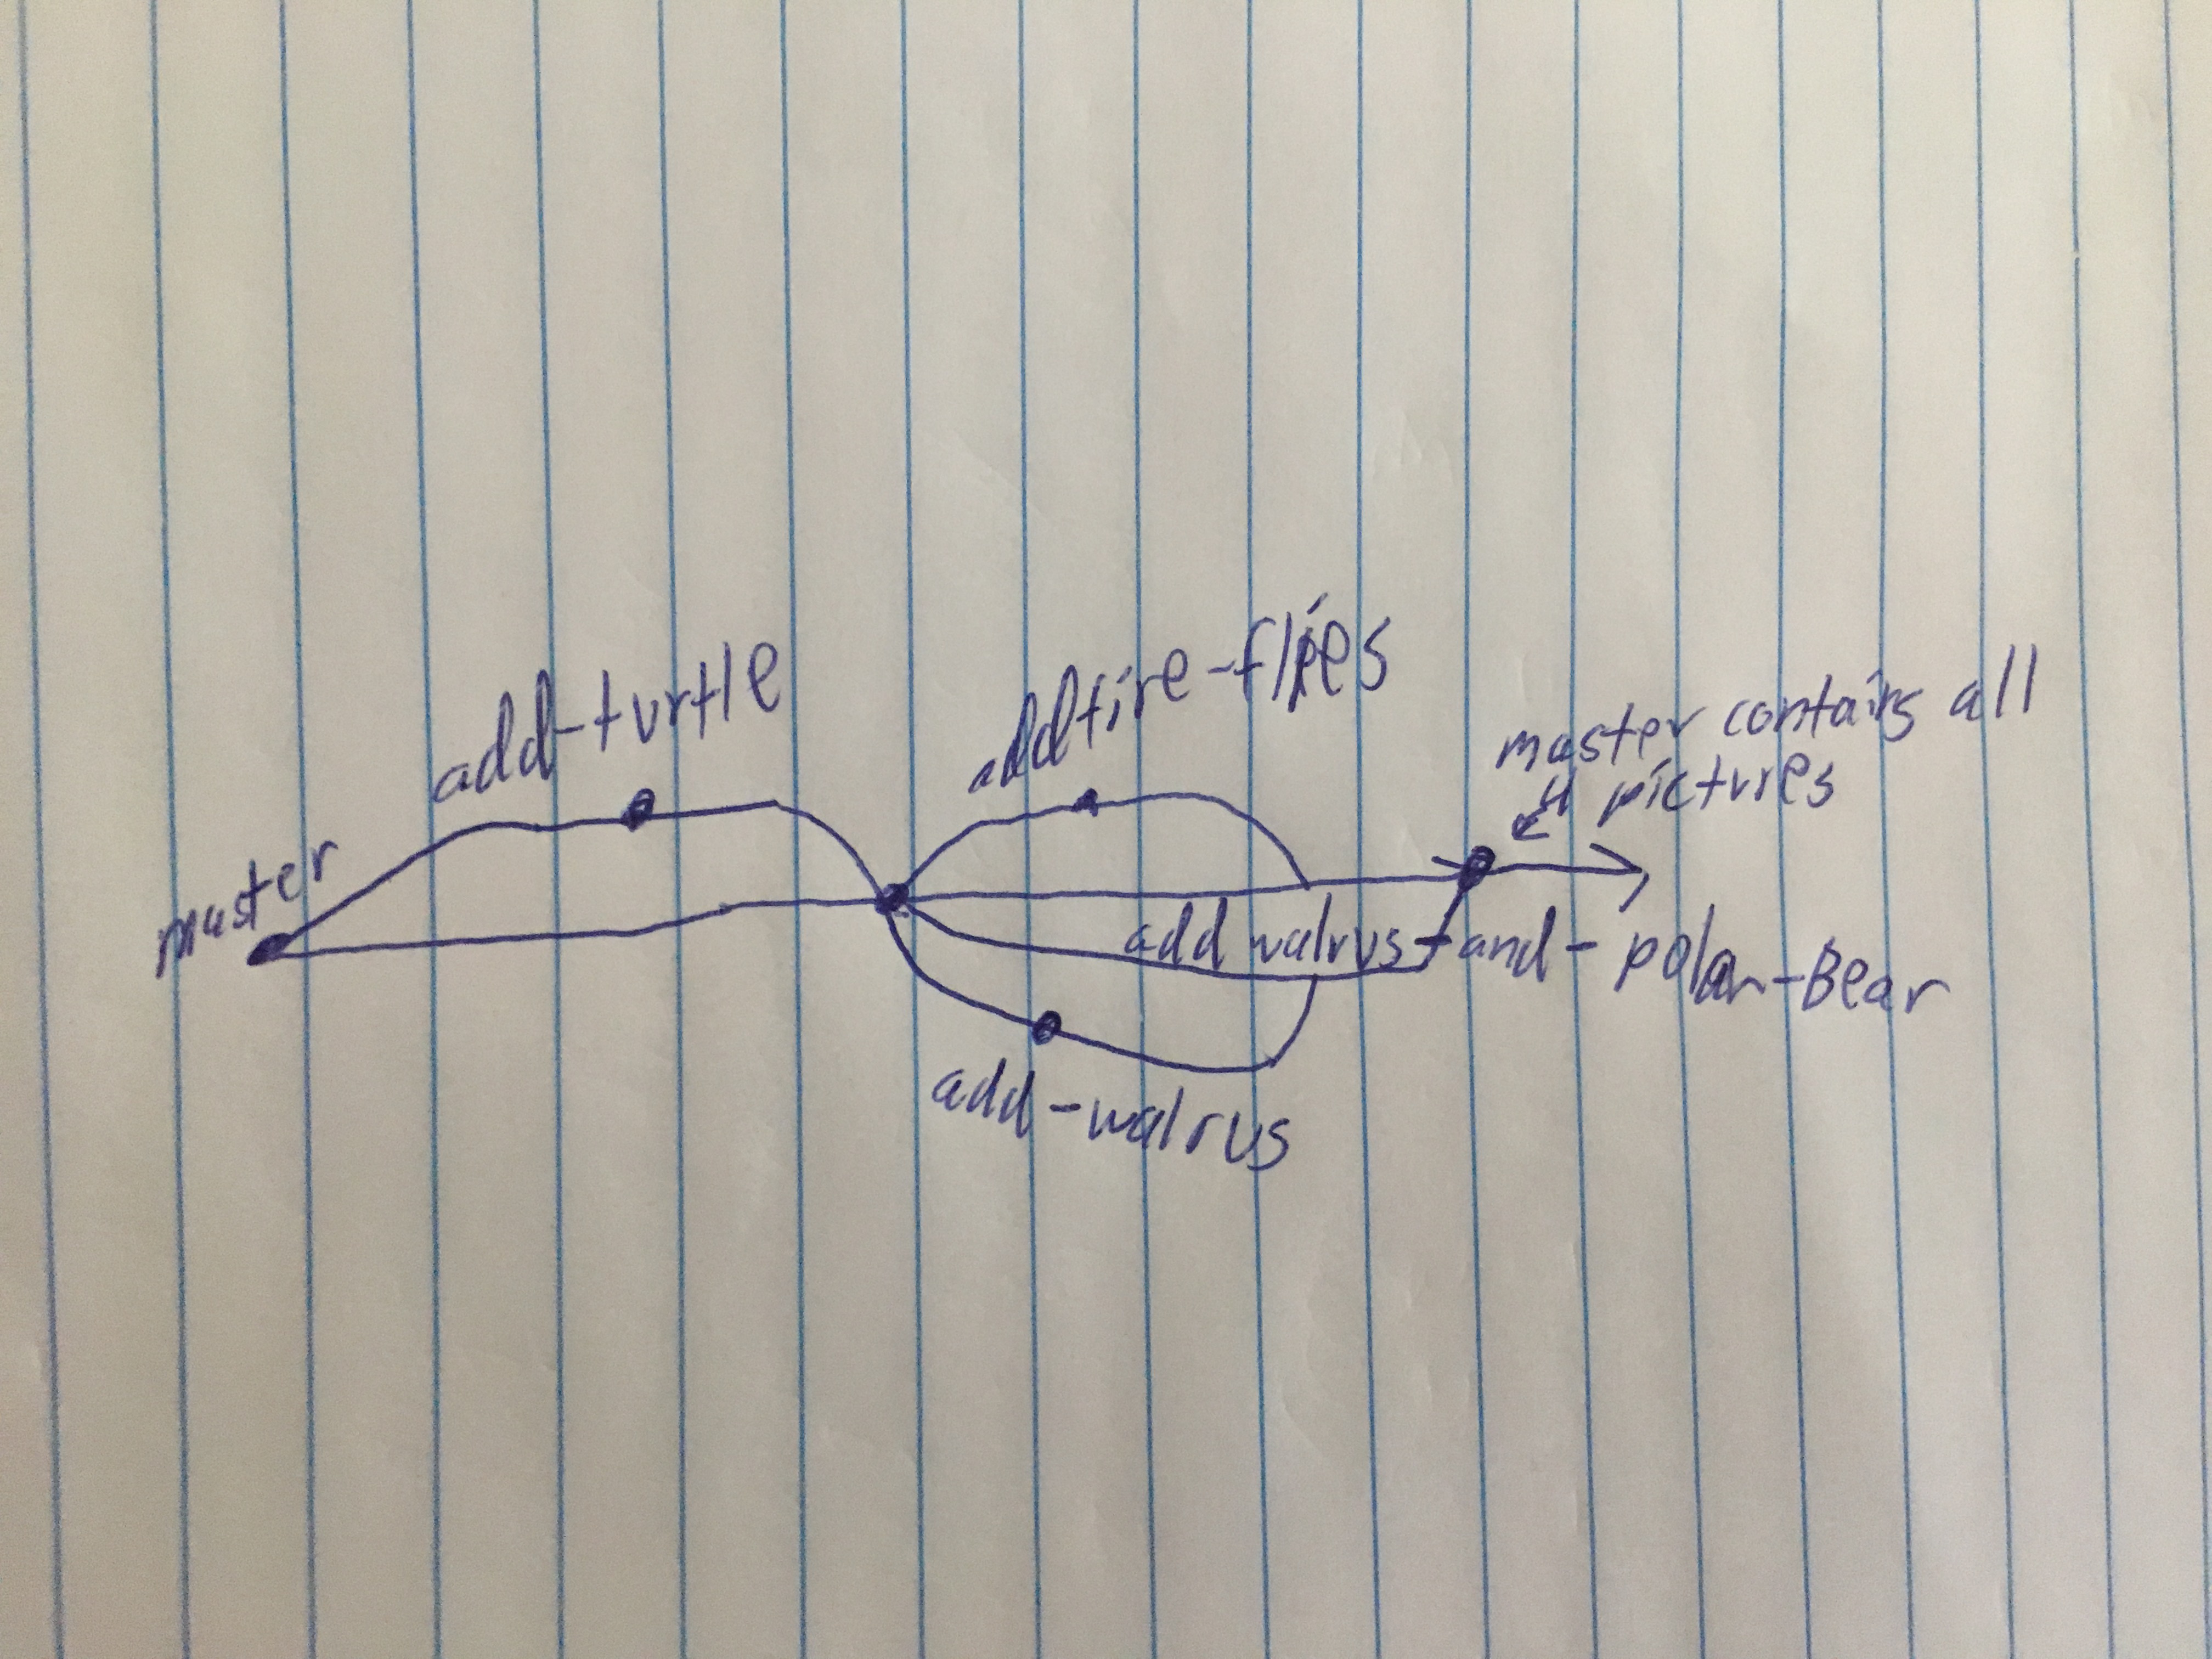 master
add-turtle
addfire-flies
master contains all
4 pictures
add walrus-and-polar-Bear
add-walrus